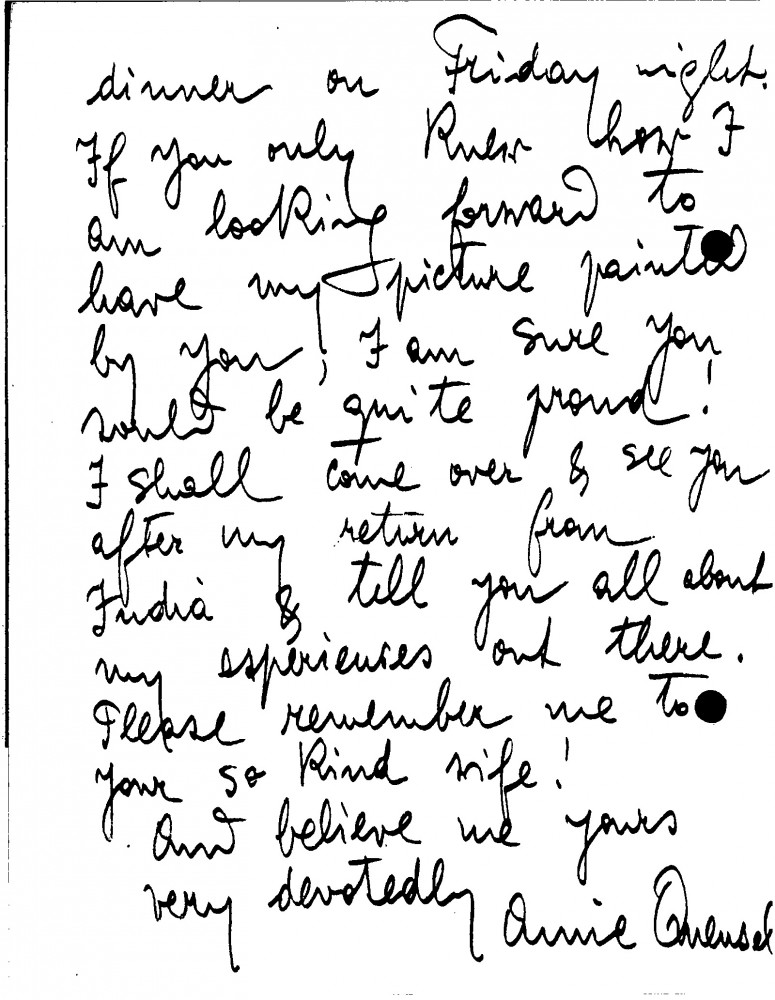 dinner on Friday night.
If you only knew how I
am looking forward to
have my picture painted
by you; I am sure you
would be quite proud!
I shall come over & see you
after my return from
India & tell you all about
my experiences out there.
Please remember me to
your so kind wife!
And believe me yours
very devotedly Annie